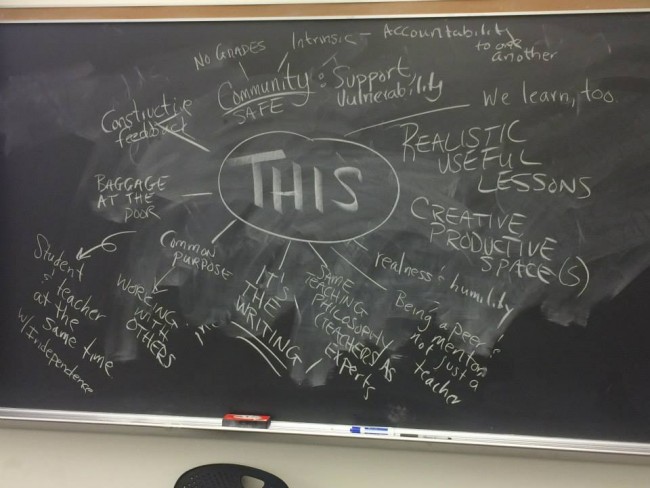 NO GRADES
Intrinsic - Accountability
to one
another
Community: Support,
SAFE
Vulnerability
We learn, too.
Constructive
feedback
THIS
REALISTIC
USEFUL
LESSONS
BAGGAGE
AT THE
DOOR
CREATIVE
PRODUCTIVE
SPACE(S)
Common
PURPOSE
realness + humility
Student
& teacher
at the
same time
w/Independence
WORKING
WITH
OTHERS
IT'S
THE
WRITING
SAME
TEACHING
PHILOSOPHY
(TEACHERS AS
Experts
Being a peer &
mentor
not just a
teacher